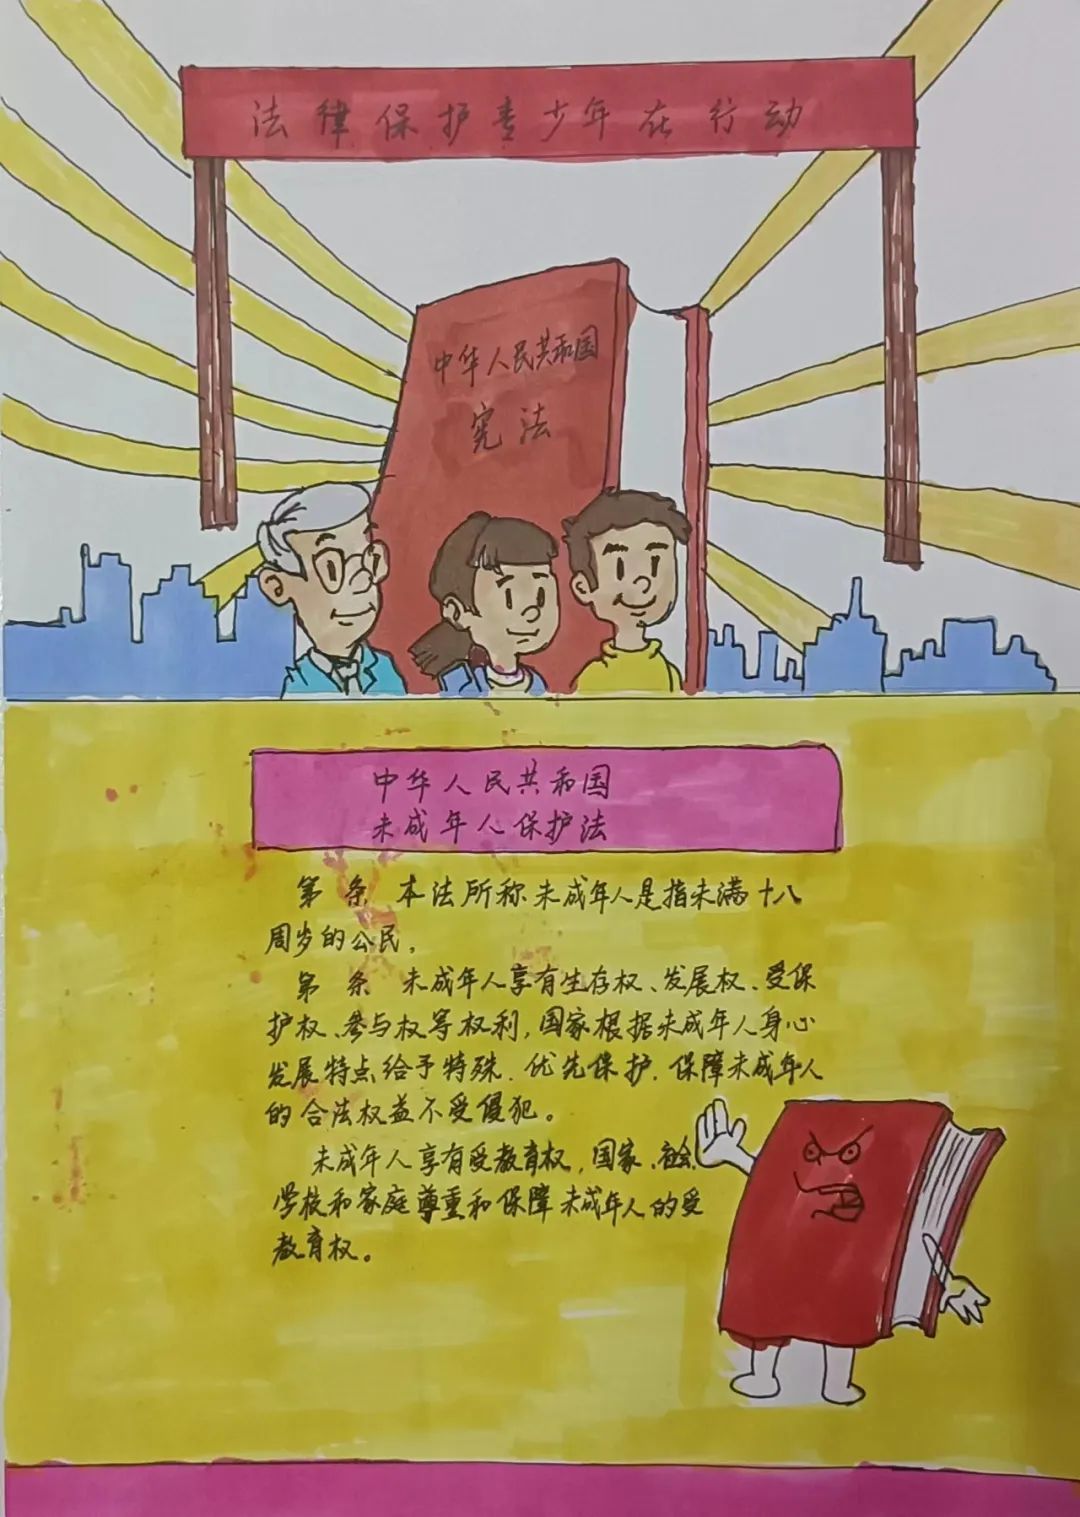 法律保护青少年在行动
中华人民共和国
宪法
中华人民共和国
未成年人保护法
第 条 本法所称未成年人是指未满十八
周岁的公民。
第 条 未成年人享有生存权、发展权、受保
护权、参与权等权利,国家根据未成年人身心
发展特点给予特殊、优先保护,保障未成年人
的合法权益不受侵犯。
未成年人享有受教育权,国家、社会、
学校和家庭尊重和保障未成年人的受
教育权。